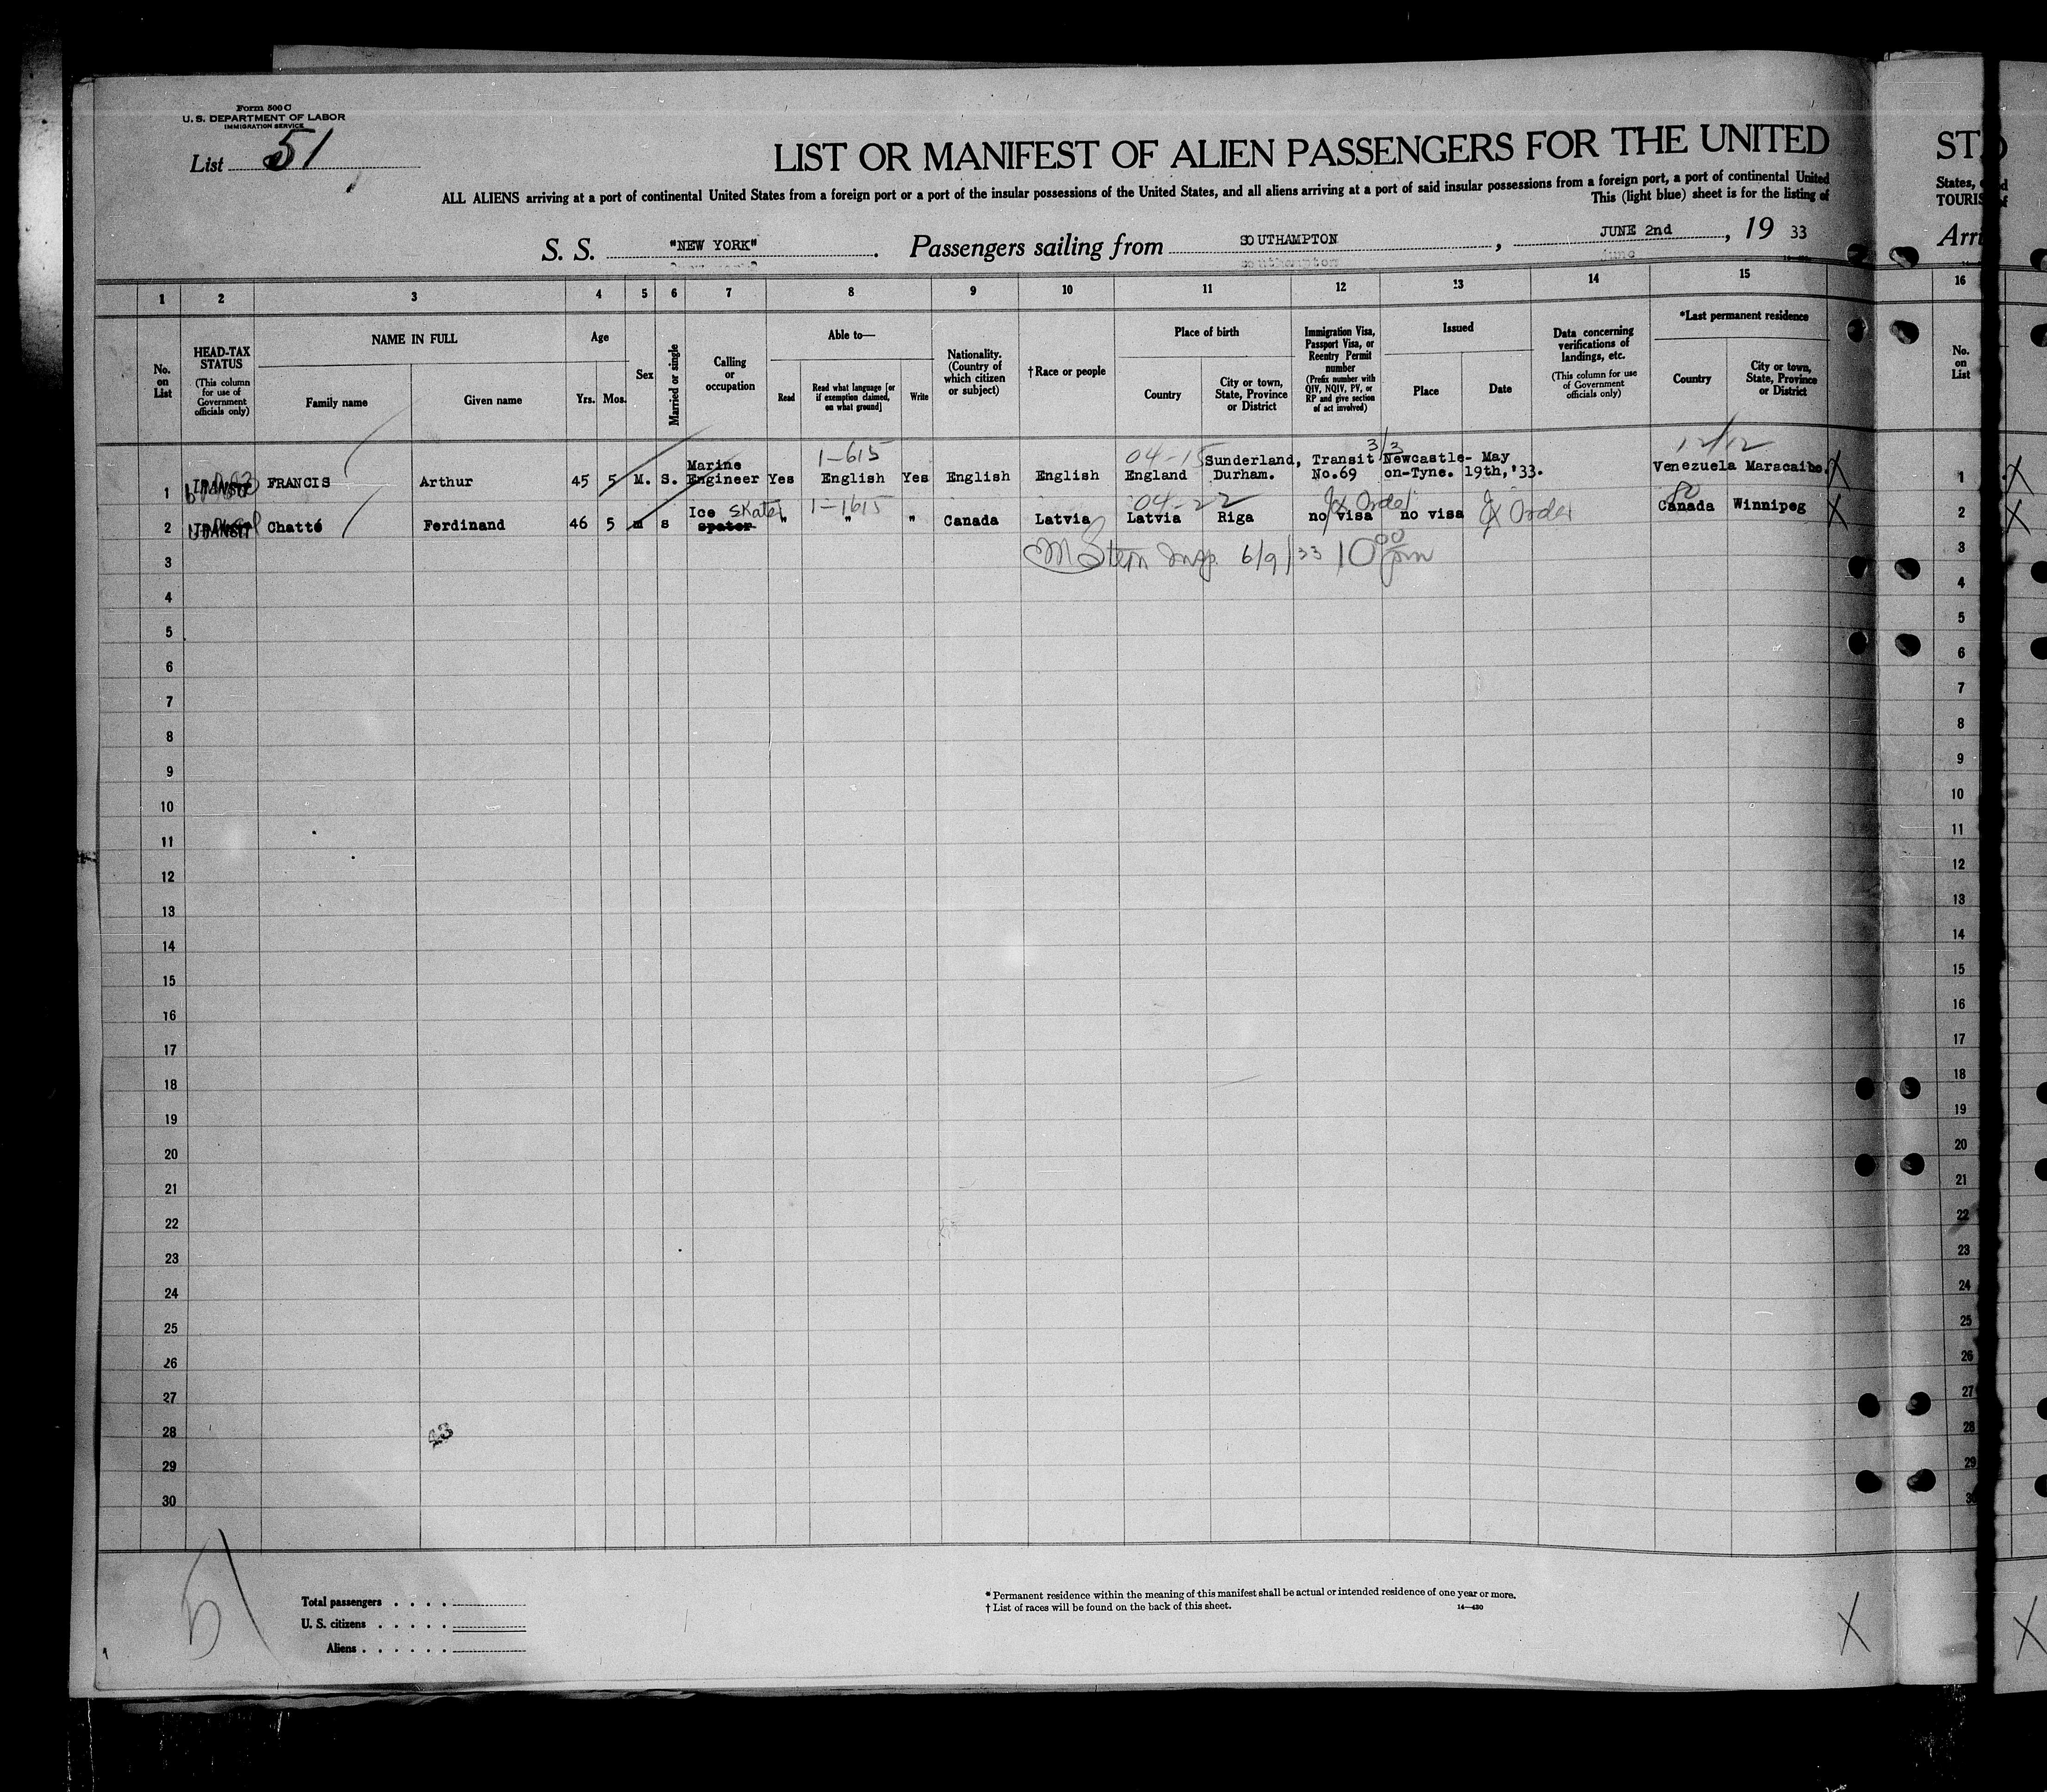 Form 500 C
U. S. DEPARTMENT OF LABOR
IMMIGRATION SERVICE
List 51
LIST OR MANIFEST OF ALIEN PASSENGERS FOR THE UNITED
ALL ALIENS arriving at a port of continental United States from a foreign port or a port of the insular possessions of the United States, and all aliens arriving at a port of said insular possessions from a foreign port, a port of continental United
This (light blue) sheet is for the listing of
S. S. "NEW YORK". Passengers sailing from SOUTHAMPTON, JUNE 2nd, 19 33
1 2 3 4 5 6 7 8 9 10 11 12 13 14 15
No. on List
HEAD-TAX STATUS (This column for use of Government officials only)
NAME IN FULL
Family name
Given name
Age
Yrs. Mos.
Sex
Married or single
Calling or occupation
Able to—
Read
Read what language [or if exemption claimed, on what ground]
Write
Nationality. (Country of which citizen or subject)
†Race or people
Place of birth
Country
City or town, State, Province or District
Immigration Visa, Passport Visa, or Reentry Permit number (Prefix number with QIV, NQIV, PV, or RP and give section of act involved)
Issued
Place
Date
Data concerning verifications of landings, etc. (This column for use of Government officials only)
*Last permanent residence
Country
City or town, State, Province or District
1-615 04-15 3/3 12/12
1 TRANSIT FRANCIS Arthur 45 5 M. S. Marine Engineer Yes English Yes English English England Sunderland, Durham. Transit No.69 Newcastle-on-Tyne. May 19th,'33. Venezuela Maracaibo.
1-1615 04-22 Ex Order 80
2 TRANSIT Chatté Ferdinand 46 5 m s Ice spater Skater " " " Canada Latvia Latvia Riga no visa no visa Ex Order Canada Winnipeg
3 M Stern Insp. 6/9/33 10 00 pm
4
5
6
7
8
9
10
11
12
13
14
15
16
17
18
19
20
21
22
23
24
25
26
27
28 43
29
30
51
Total passengers . . . .
U. S. citizens . . . . .
Aliens . . . . . .
* Permanent residence within the meaning of this manifest shall be actual or intended residence of one year or more.
† List of races will be found on the back of this sheet. 14—430
X
ST
States,
TOURIS
Arri
16
No. on List
1
2
3
4
5
6
7
8
9
10
11
12
13
14
15
16
17
18
19
20
21
22
23
24
25
26
27
28
29
X